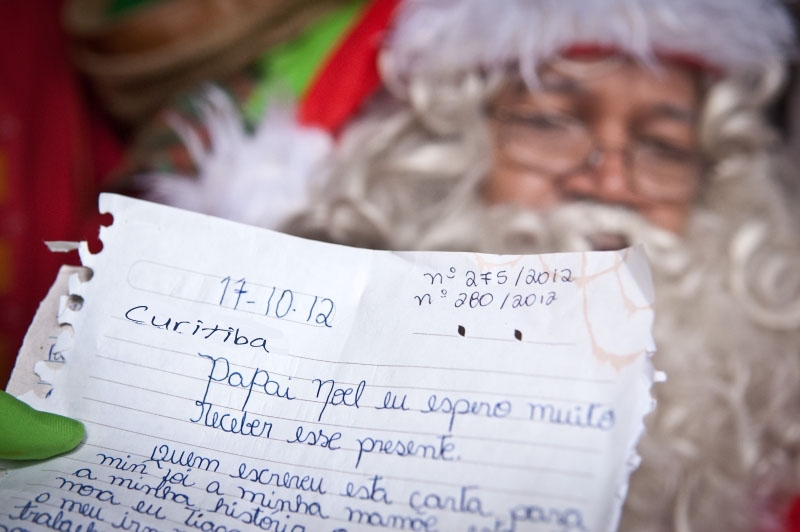 nº 275/2012
nº 280/2012
17-10-12
Curitiba
Papai Noel eu espero muito
Receber esse presente.
Quem escreveu esta carta para
min foi a minha mamãe
a minha história
mora eu
o meu